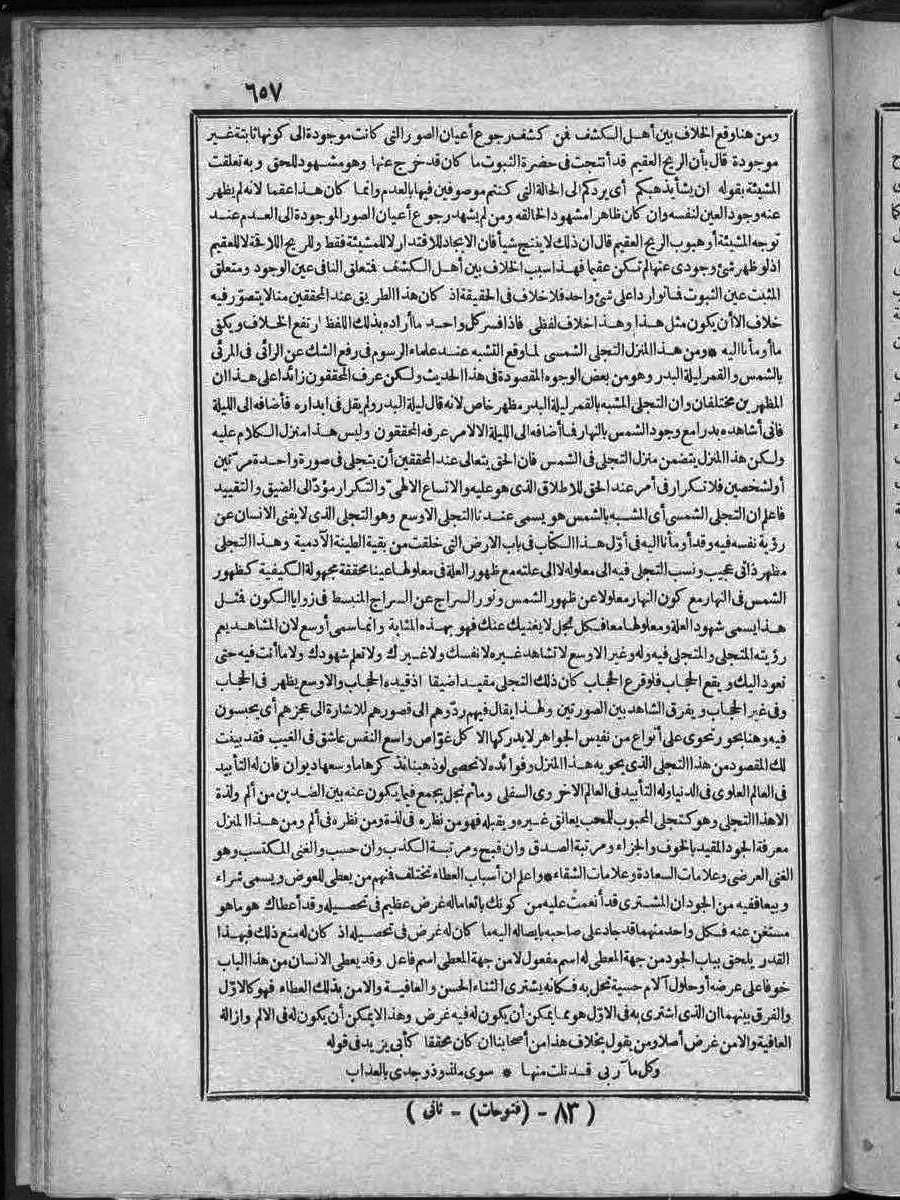 ٦٥٧
ومن هنا وقع الخلاف بين أهل الكشف فمن كشف رجوع أعيان الصور التى كانت موجودة الى كونها ثابتة غير
موجودة قال بأن الريح العقيم قد أنتجت فى حضرة الثبوت ما كان قد خرج عنها وهو مشهود للحق وبه تعلقت
المشيئة بقوله ان يشأ يذهبكم أى يردكم الى الحالة التى كنتم موصوفين فيها بالعدم وانما كان هذا عقما لانه لم يظهر
عنه وجود العين لنفسه وان كان ظاهرا مشهودا لخالقه ومن لم يشهد رجوع أعيان الصور الموجودة الى العدم عند
توجه المشيئة أو هبوب الريح العقيم قال ان ذلك لا ينتج شيأ فان الايجاد للاقتدار لا للمشيئة فقط وللريح اللاقحة لا للعقيم
اذ لو ظهر شئ وجودى عنها لم تكن عقيما فهذا سبب الخلاف بين أهل الكشف فتعلق النافى عين الوجود ومتعلق
المثبت عين الثبوت فما توارد اعلى شئ واحد فلا خلاف فى الحقيقة اذ كان هذا الطريق عند المحققين منا لا يتصوّر فيه
خلاف الا أن يكون مثل هذا وهذا خلاف لفظى فاذا فسر كل واحد ما أراده بذلك اللفظ ارتفع الخلاف ويكفى
ما أومأنا اليه * ومن هذا المنزل التجلى الشمسى لما وقع التشبه عند علماء الرسوم فى رفع الشك عن الرائى فى المرئى
بالشمس والقمر ليلة البدر وهو من بعض الوجوه المقصودة فى هذا الحديث ولكن عرف المحققون زائدا على هذا ان
المظهرين مختلفان وان التجلى المشبه بالقمر ليلة البدر مظهر خاص لانه قال ليلة البدر ولم يقل فى ابداره فأضافه الى الليلة
فانى أشاهده بدرا مع وجود الشمس بالنهار فما أضافه الى الليلة الا لامر عرفه المحققون وليس هذا منزل الكلام عليه
ولكن هذا المنزل يتضمن منزل التجلى فى الشمس فان الحق يتعالى عند المحققين أن يتجلى فى صورة واحدة مرّتين
أو لشخصين فلا تكرار فى أمر عند الحق للاطلاق الذى هو عليه والاتساع الالهىّ والتكرار مؤدّ الى الضيق والتقييد
فاعلم ان التجلى الشمسى أى المشبه بالشمس هو يسمى عندنا التجلى الاوسع وهو التجلى الذى لا يفنى الانسان عن
رؤية نفسه فيه وقد أومأنا اليه فى أوّل هذا الكتاب فى باب الارض التى خلقت من بقية الطينة الآدمية وهذا التجلى
مظهر ذاتى عجيب ونسب التجلى فيه الى معلوله لا الى علته مع ظهور العلة فى معلولها عينا محققة مجهولة الكيفية كظهور
الشمس فى النهار مع كون النهار معلولا عن ظهور الشمس ونور السراج عن السراج المنبسط فى زوايا الكون فمثل
هذا يسمى شهود العلة ومعلولها معا فكل مجل لا يغنيك عنك فهو بهذه المثابة وانما سمى أوسع لان المشاهد يعم
رؤيته المتجلى والمتجلى فيه وله وغير الاوسع لا تشاهد غيره لا نفسك ولا غيرك ولا تعلم شهودك ولا ما أنت فيه حتى
تعود اليك ويقع الحجاب فلو قرع الحجاب كان ذلك التجلى مقيدا ضيقا اذ قيده الحجاب والاوسع يظهر فى الحجاب
وفى غير الحجاب ويفرق الشاهد بين الصورتين ولهذا يقال فيهم ردّوهم الى قصورهم للاشارة الى عجزهم أى يحبسون
فيه وهنا بحور تحوى على أنواع من نفيس الجواهر لا يدركها الا كل غوّاص واسع النفس عاشق فى الغيب فقد بينت
لك المقصود من هذا التجلى الذى يحويه هذا المنزل وفوائده لا تحصى لو ذهبنا نذكرها ما وسعها ديوان فان له التأييد
فى العالم العلوى فى الدنيا وله التأييد فى العالم الاخروى السفلى وما ثم تجل يجمع فيما يكون عنه بين الضدين من ألم ولذة
الا هذا التجلى وهو كتجلى المحبوب للمحب يعانق غيره ويقبله فهو من نظره فى لذة ومن نظره فى ألم ومن هذا المنزل
معرفة الجود المقيد بالخوف والجزاء ومرتبة الصدق وان قبح ومرتبة الكذب وان حسب والغنى المكتسب وهو
الغنى العرضى وعلامات السعادة وعلامات الشقاء * واعلم ان أسباب العطاء تختلف فنهم من يعطى للعوض ويسمى شراء
وبيعا ففيه من الجود ان المشترى قد أنعمت عليه من كونك بائعا ماله غرض عظيم فى تحصيله وقد أعطاك هو ما هو
مستغن عنه فكل واحد منهما قد جاد على صاحبه بايصاله اليه ما كان له غرض فى تحصيله اذ كان له منع ذلك فبهذا
القدر يلحق بباب الجود من جهة المعطى له اسم مفعول لا من جهة المعطى اسم فاعل وقد يعطى الانسان من هذا الباب
خوفا على عرضه أو حلول آلام حسية تحل به فكانه يشترى الثناء الحسن والعافية والامن بذلك العطاء فهو كالاوّل
والفرق بينهما ان الذى اشترى به فى الاوّل هو مما يمكن أن يكون له فيه غرض وهذا لا يمكن أن يكون له فى الالم وازالة
العافية والامن غرض أصلا ومن يقول بخلاف هذا من أصحابنا ان كان محققا كأبى يزيد فى قوله
وكل مآربى قد نلت منها * سوى ملذوذ وجدى بالعذاب
( ٨٣ - (فتوحات) - ثانى )